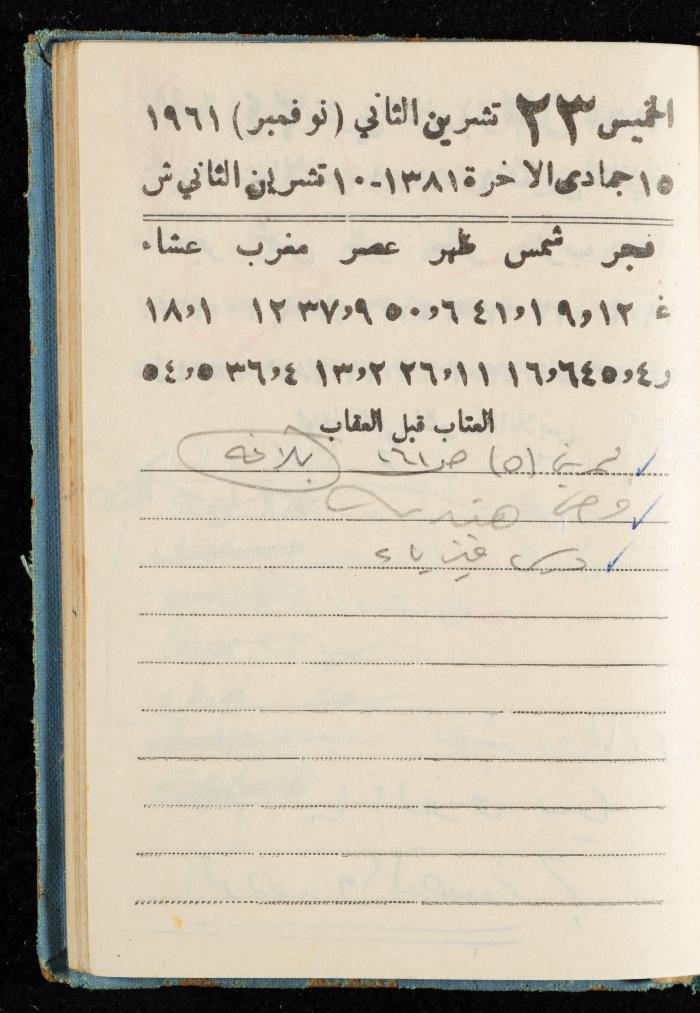 الخميس ٢٣ تشرين الثاني (نوفمبر) ١٩٦١
١٥ جمادى الاخرة ١٣٨١-١٠ تشرين الثاني ش
فجر شمس ظهر عصر مغرب عشاء
غ ١٢و٩ ١و٤١ ٦و٥٠ ٩و٣٧ ١٢ ١و١٨
و ٤و٤٥ ٦و١٦ ١١و٢٦ ٢و١٣ ٤و٣٦ ٥و٥٤
العتاب قبل العقاب
تمرين (٥) ص ١٦١ بلاغة
هندسة
درس فيزياء